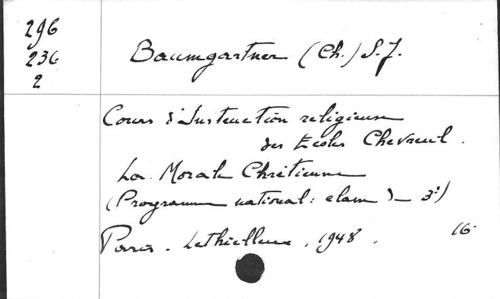 296
236
2
Baumgartner (Ch.) S.J.
Cours d'Instruction religieuse
des Ecoles Chevreul.
La Morale Chrétienne
(Programme national: classe 3e)
Paris. Lethielleux, 1948. 16.